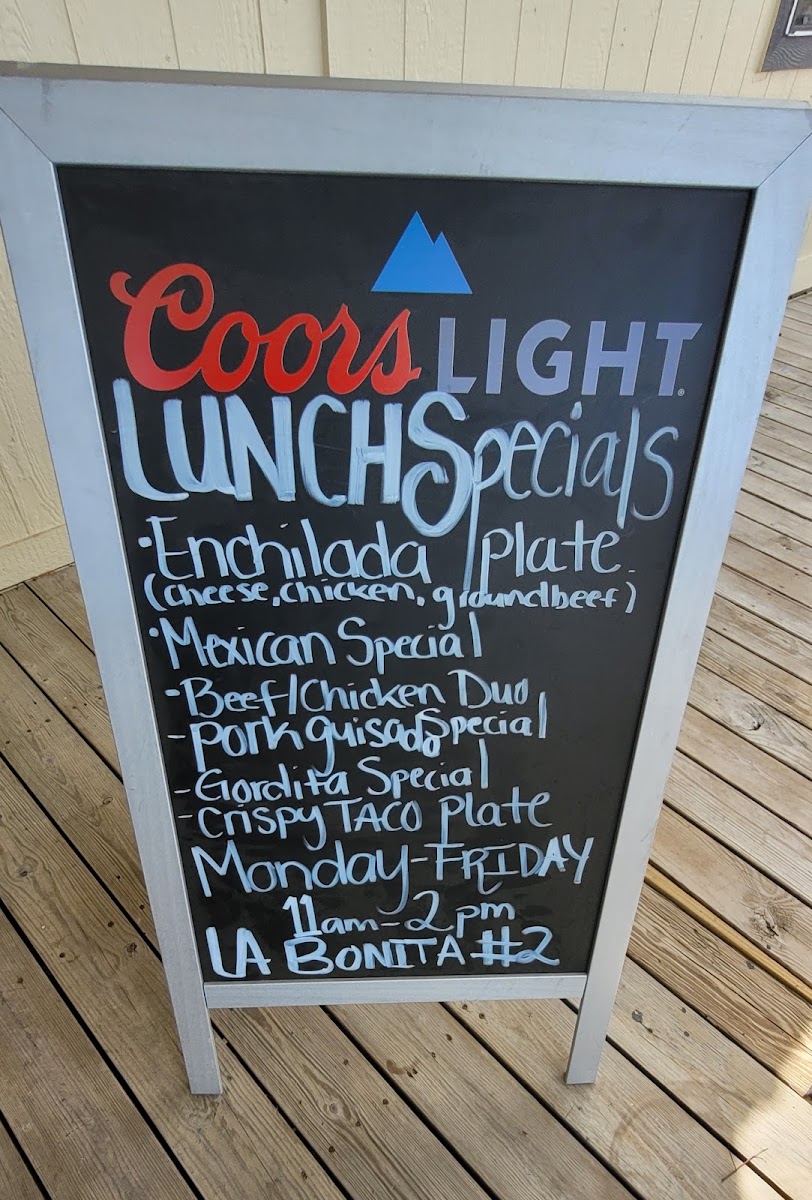 Coors LIGHT
LUNCH Specials
·Enchilada plate
(cheese, chicken, ground beef)
·Mexican Special
-Beef/Chicken Duo
-Pork guisado Special
-Gordita Special
-Crispy TACO plate
Monday-FRIDAY
11am-2pm
LA BONITA #2